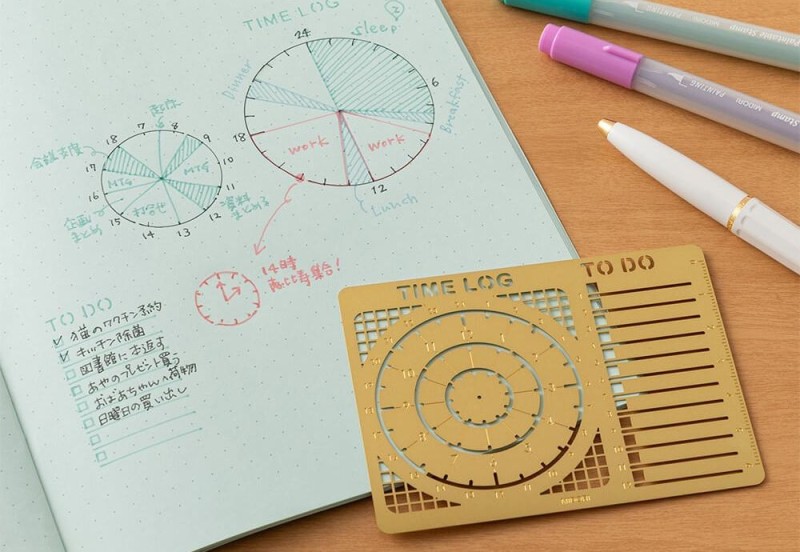 TIME LOG
24
sleep
2
Dinner
6
Breakfast
18
work
work
12
Lunch
7
8
18
9
17
10
MTG
MTG
16
11
15
12
14
13
企画
まとめ
資料
まとめる
14時
恵比寿集合!
TO DO
猫のワクチン予約
キッチン除菌
図書館に本返す
あやのプレゼント買う
おばあちゃんへ荷物
日曜日の買い出し
TIME LOG
TO DO
Paintable Stamp MIDORI PAINTING
Stamp MIDORI PAINTING